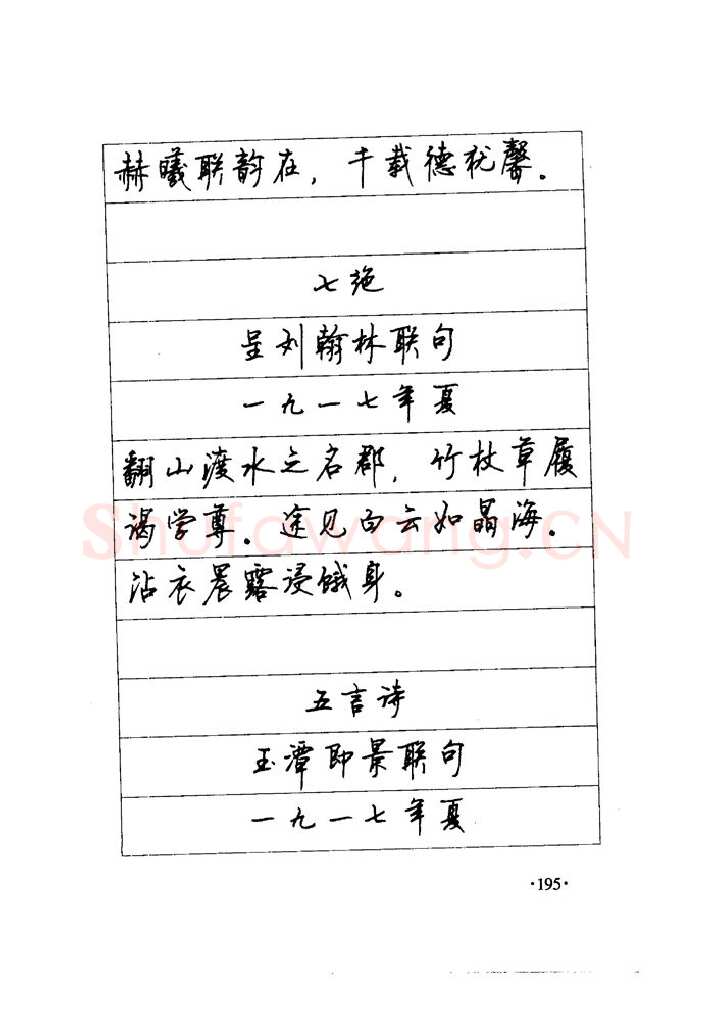 赫曦联韵在，千载德犹馨.
七绝
呈刘翰林联句
一九一七年夏
翻山渡水之名郡，竹杖草履
谒学尊.途见白云如晶海.
沾衣晨露浸饿身。
五言诗
玉潭即景联句
一九一七年夏
·195·
Shufawang.CN